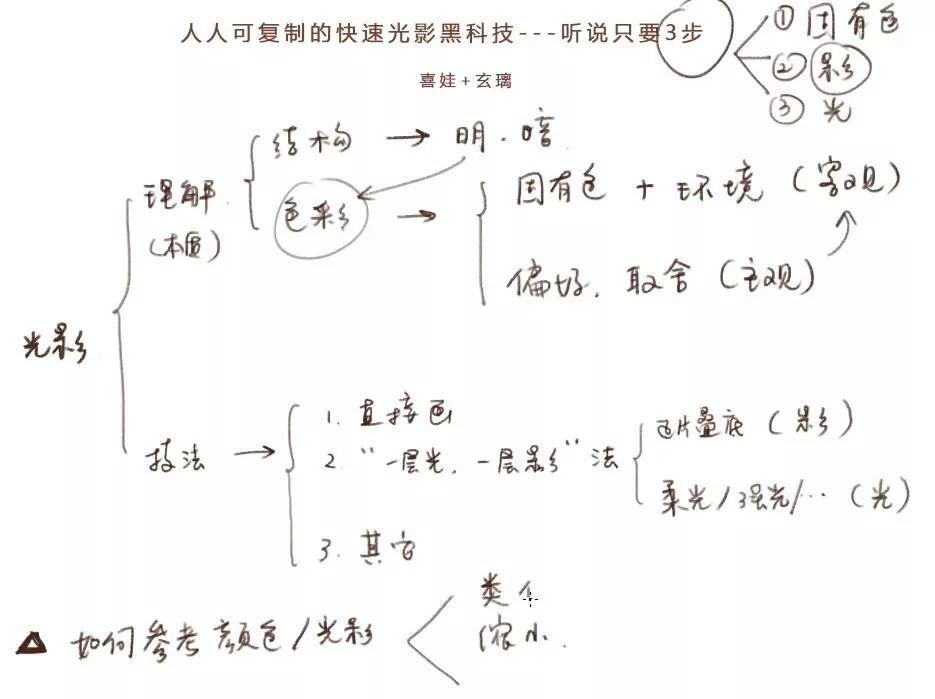 人人可复制的快速光影黑科技---听说只要3步
喜娃+玄璃
① 固有色
② 影
③ 光
光影
理解
(本质)
结构 → 明.暗
色彩 →
固有色 + 环境 (客观)
偏好. 取舍 (主观)
技法 →
1. 直接画
2. "一层光, 一层影" 法
正片叠底 (影)
柔光/强光/… (光)
3. 其它
如何参考颜色/光影
类
缩小.